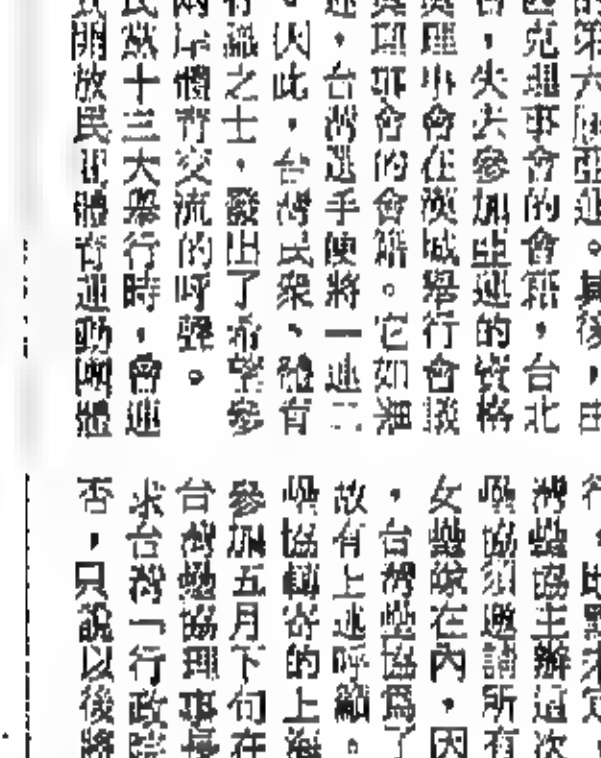 第六屆亞運。其後,由
克理事會的會籍,台北
,失去參加亞運的資格
理事會在漢城舉行會議
事會的會籍。它如
,台灣選手便將一連二
因此,台灣民眾、體育
識之士,發出了希望參
兩岸體育交流的呼聲。
民黨十三大舉行時,曾通
開放民間體育運動團體
灣壘協主辦這次
協須邀請所有
女壘隊在內,因
,台灣壘協為了
故有上述呼籲。
協轉寄的上海
參加五月下旬在
台灣壘協理事長
求台灣「行政院
否,只說以後將